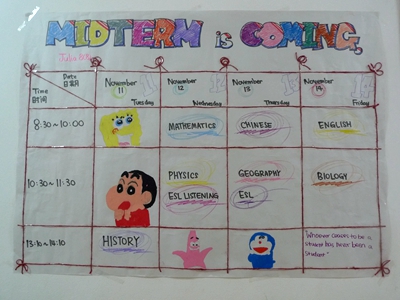 MIDTERM is COMING.
Date
日期
Time
时间
November 11 Tuesday
November 12 Wednesday
November 13 Thursday
November 14 Friday
8:30~10:00
MATHEMATICS
CHINESE
ENGLISH
10:30~11:30
PHYSICS
ESL LISTENING
GEOGRAPHY
ESL
BIOLOGY
13:10~14:10
HISTORY
"Whoever claims to be a
student has never been a
student"